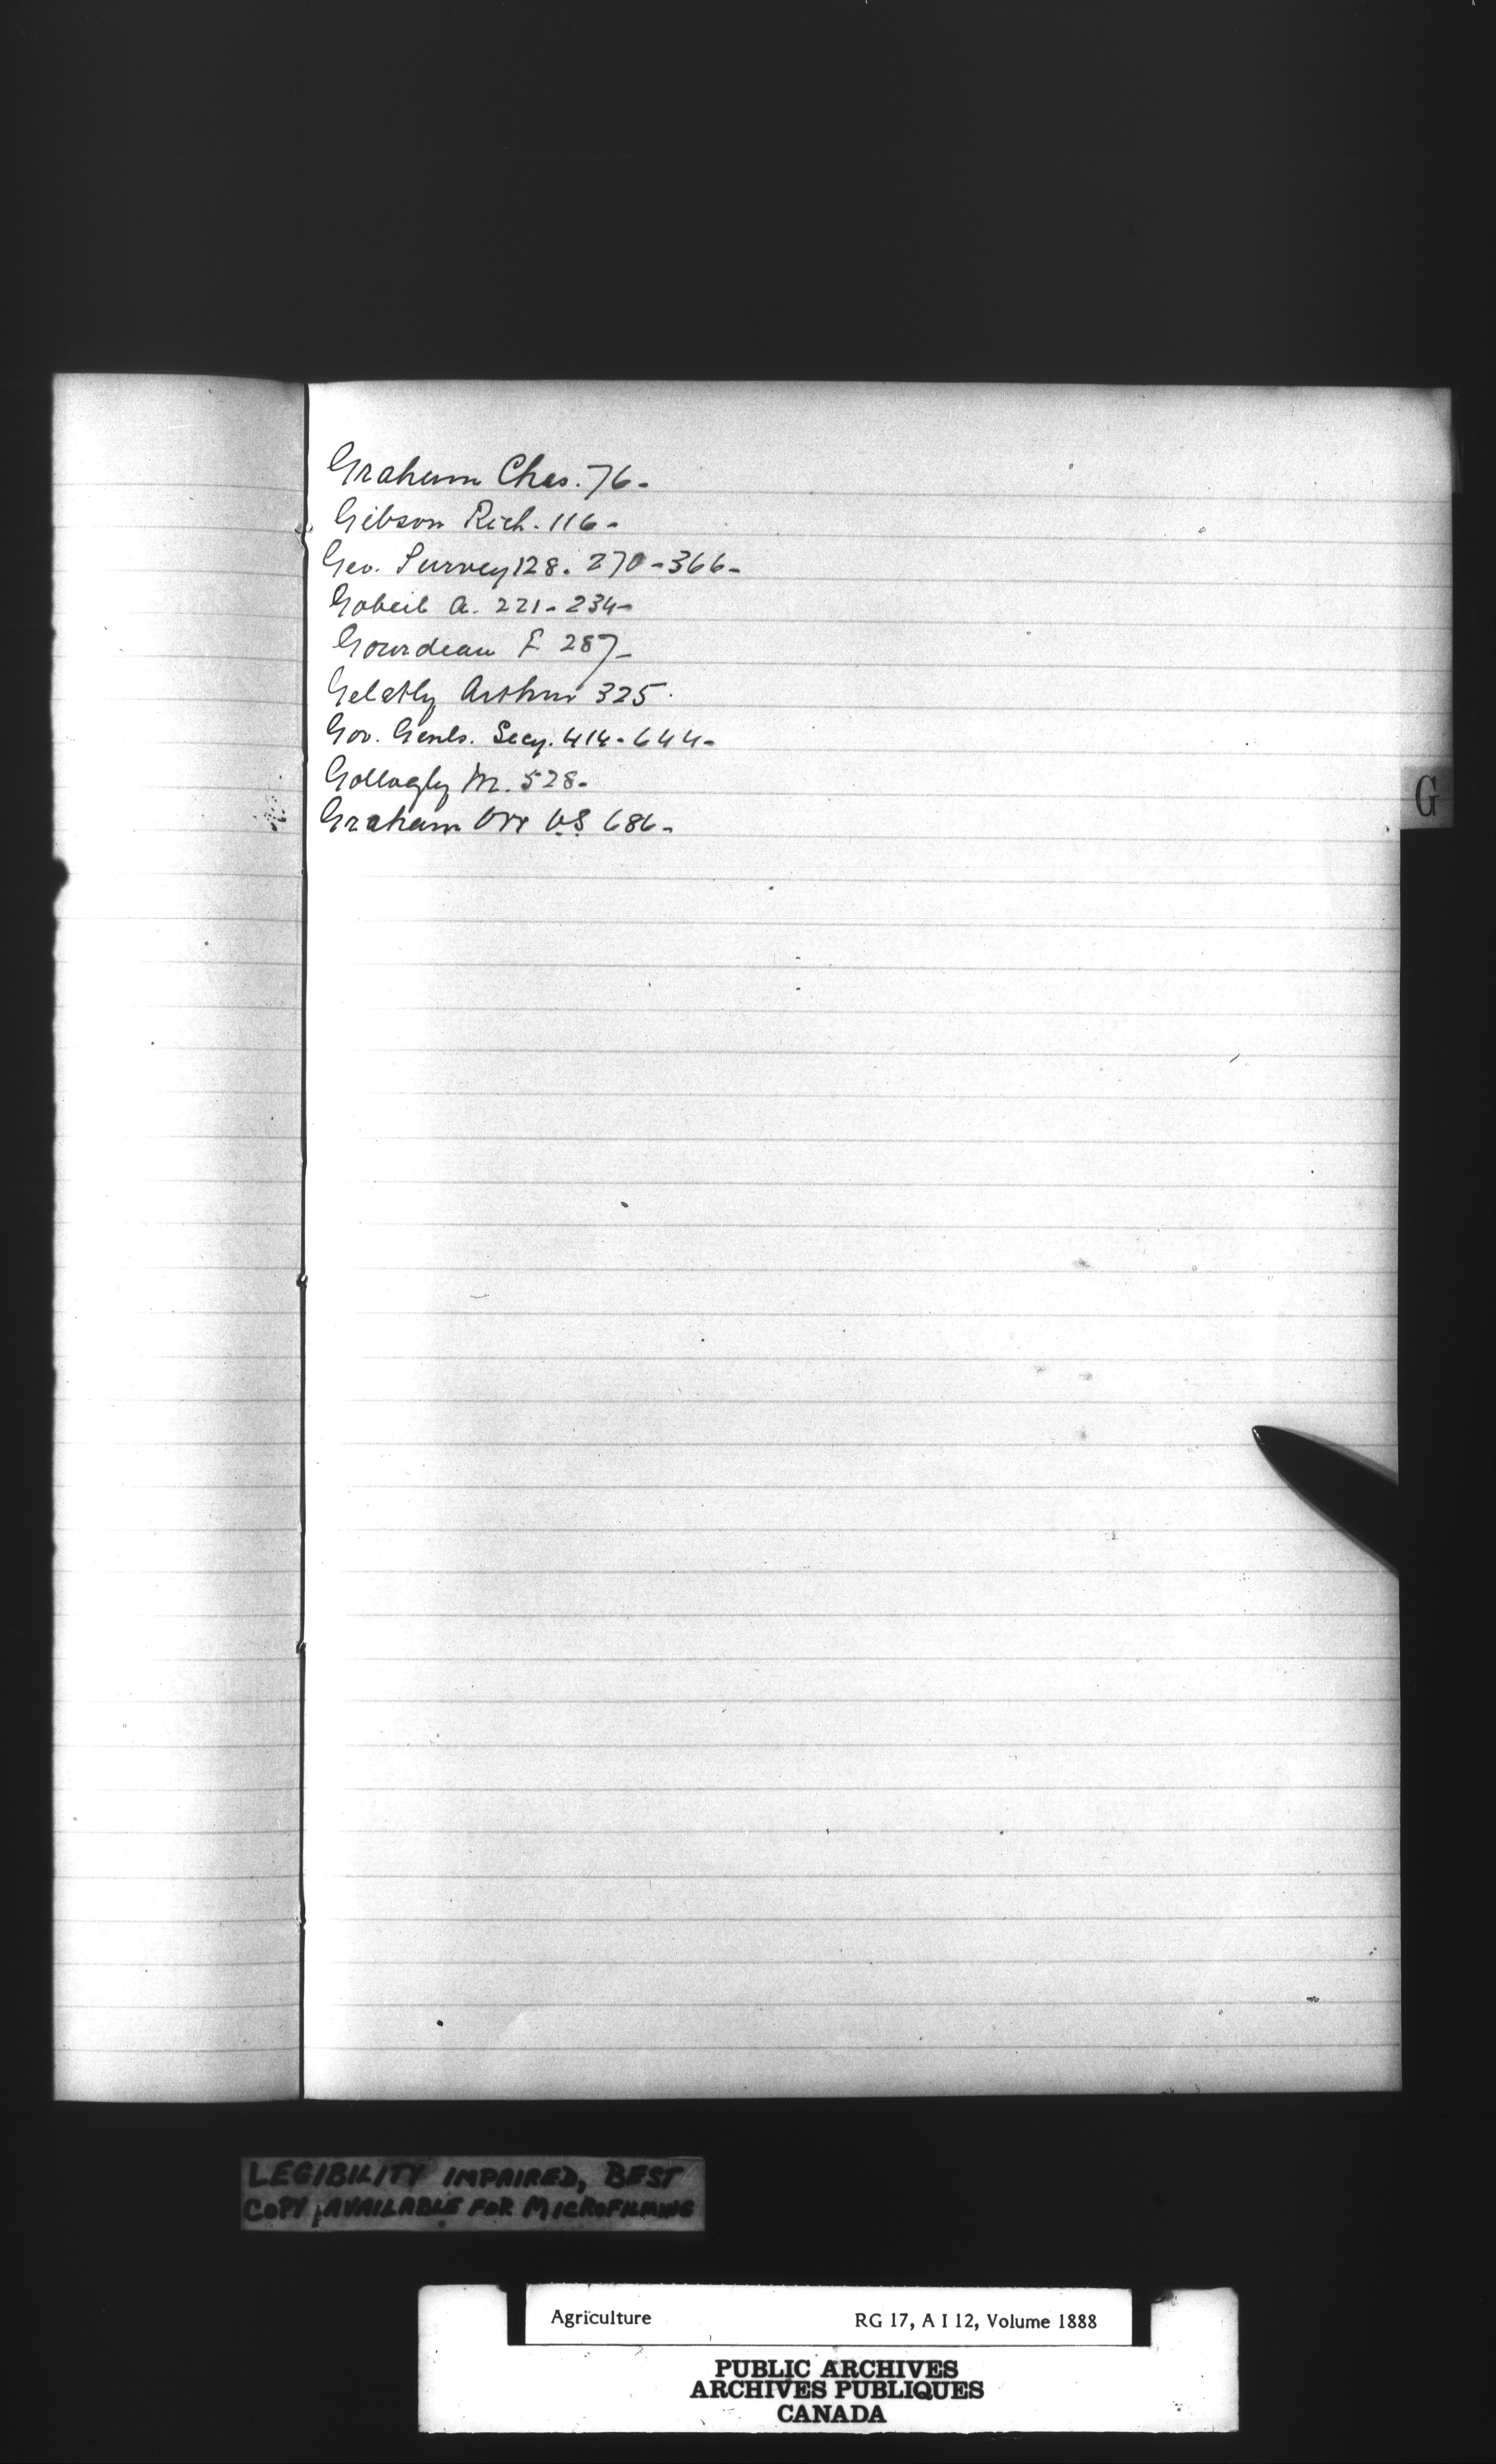 Graham Chas. 76-
Gibson Rich. 116-
Geo. Survey 128. 270-366-
Gobeil A. 221-234-
Gourdeau F 287-
Gelatly Arthur 325.
Gov. Genls. Secy. 414-644-
Gollogly M. 528-
Graham Orr V.S 686-
G
LEGIBILITY IMPAIRED, BEST
COPY AVAILABLE FOR MICROFILMING
Agriculture RG 17, A I 12, Volume 1888
PUBLIC ARCHIVES
ARCHIVES PUBLIQUES
CANADA